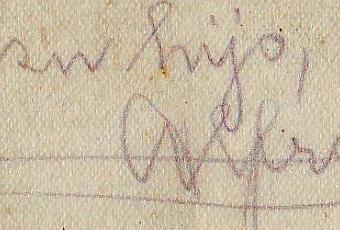 su hijo,
Alfr